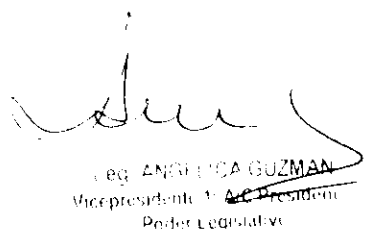 Leg. ANGELICA GUZMAN
Vicepresidente 1º A/C Presidente
Poder Legislativo